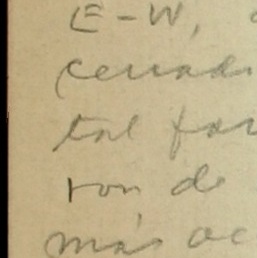 E-W,
cerrad
tal for
ron de
más ac